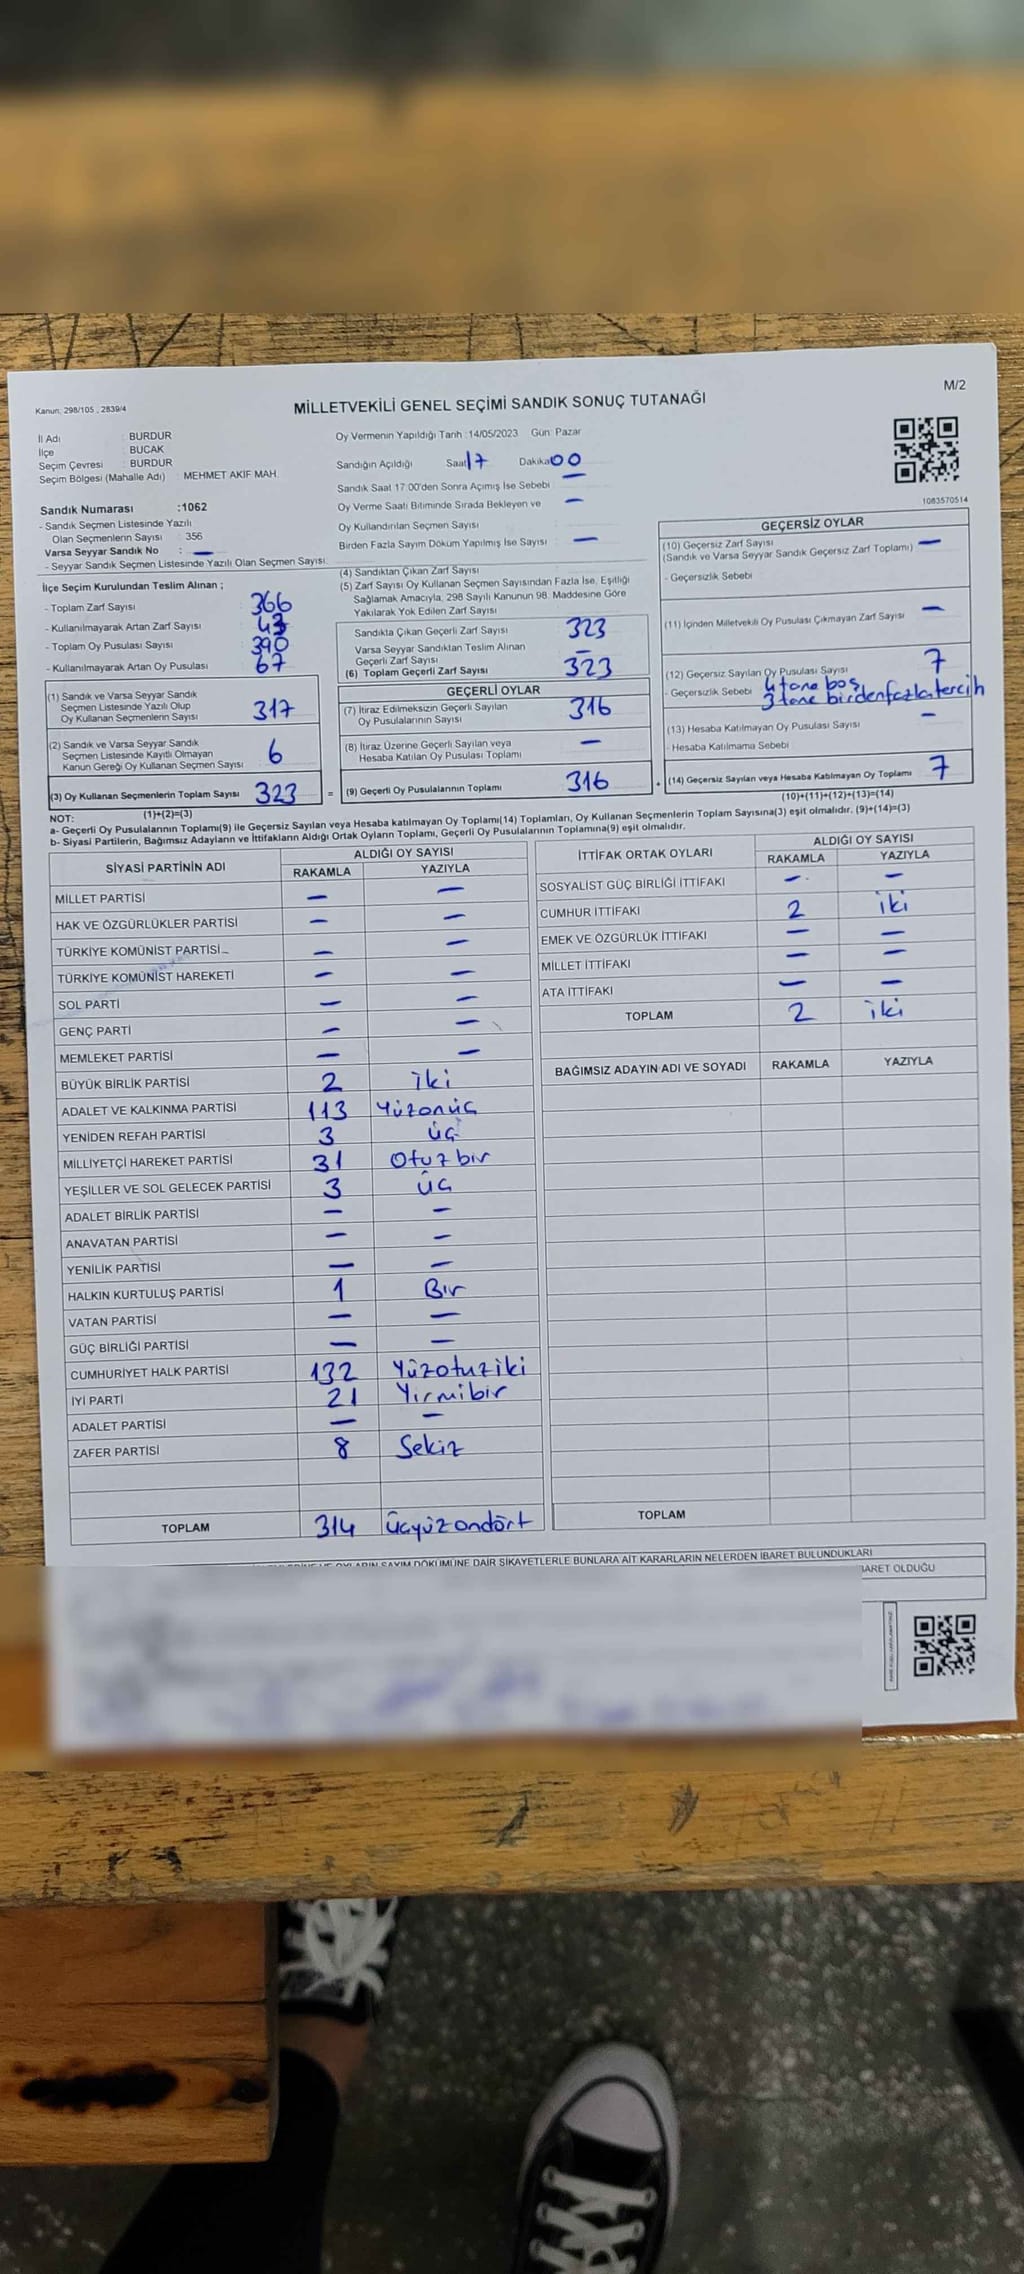 M/2
Kanun: 298/105 , 2839/4
MİLLETVEKİLİ GENEL SEÇİMİ SANDIK SONUÇ TUTANAĞI
İl Adı : BURDUR
İlçe : BUCAK
Seçim Çevresi : BURDUR
Seçim Bölgesi (Mahalle Adı) : MEHMET AKİF MAH.
Sandık Numarası :1062
- Sandık Seçmen Listesinde Yazılı
Olan Seçmenlerin Sayısı : 356
Varsa Seyyar Sandık No : —
- Seyyar Sandık Seçmen Listesinde Yazılı Olan Seçmen Sayısı:
Oy Vermenin Yapıldığı Tarih :14/05/2023 Gün: Pazar
Sandığın Açıldığı Saat 17 Dakika 00
Sandık Saat 17:00'den Sonra Açımış İse Sebebi : —
Oy Verme Saati Bitiminde Sırada Bekleyen ve —
Oy Kullandırılan Seçmen Sayısı
Birden Fazla Sayım Döküm Yapılmış İse Sayısı : —
1083570514
İlçe Seçim Kurulundan Teslim Alınan ;
- Toplam Zarf Sayısı 366
- Kullanılmayarak Artan Zarf Sayısı : 43
- Toplam Oy Pusulası Sayısı 390
- Kullanılmayarak Artan Oy Pusulası : 67
(1) Sandık ve Varsa Seyyar Sandık
Seçmen Listesinde Yazılı Olup
Oy Kullanan Seçmenlerin Sayısı : 317
(2) Sandık ve Varsa Seyyar Sandık
Seçmen Listesinde Kayıtlı Olmayan
Kanun Gereği Oy Kullanan Seçmen Sayısı : 6
(3) Oy Kullanan Seçmenlerin Toplam Sayısı 323 =
(1)+(2)=(3)
(4) Sandıktan Çıkan Zarf Sayısı
(5) Zarf Sayısı Oy Kullanan Seçmen Sayısından Fazla İse, Eşitliği
Sağlamak Amacıyla, 298 Sayılı Kanunun 98. Maddesine Göre
Yakılarak Yok Edilen Zarf Sayısı
Sandıkta Çıkan Geçerli Zarf Sayısı 323
Varsa Seyyar Sandıktan Teslim Alınan
Geçerli Zarf Sayısı —
(6) Toplam Geçerli Zarf Sayısı 323
GEÇERLİ OYLAR
(7) İtiraz Edilmeksizin Geçerli Sayılan
Oy Pusulalarının Sayısı 316
(8) İtiraz Üzerine Geçerli Sayılan veya
Hesaba Katılan Oy Pusulası Toplamı —
(9) Geçerli Oy Pusulalarının Toplamı 316 +
GEÇERSİZ OYLAR
(10) Geçersiz Zarf Sayısı
(Sandık ve Varsa Seyyar Sandık Geçersiz Zarf Toplamı) —
- Geçersizlik Sebebi :
(11) İçinden Milletvekili Oy Pusulası Çıkmayan Zarf Sayısı —
(12) Geçersiz Sayılan Oy Pusulası Sayısı 7
- Geçersizlik Sebebi 4 tane boş
3 tane birden fazla tercih
(13) Hesaba Katılmayan Oy Pusulası Sayısı —
- Hesaba Katılmama Sebebi
(14) Geçersiz Sayılan veya Hesaba Katılmayan Oy Toplamı 7
(10)+(11)+(12)+(13)=(14)
NOT:
a- Geçerli Oy Pusulalarının Toplamı(9) ile Geçersiz Sayılan veya Hesaba katılmayan Oy Toplamı(14) Toplamları, Oy Kullanan Seçmenlerin Toplam Sayısına(3) eşit olmalıdır. (9)+(14)=(3)
b- Siyasi Partilerin, Bağımsız Adayların ve İttifakların Aldığı Ortak Oyların Toplamı, Geçerli Oy Pusulalarının Toplamına(9) eşit olmalıdır.
SİYASİ PARTİNİN ADI ALDIĞI OY SAYISI
RAKAMLA YAZIYLA
MİLLET PARTİSİ — —
HAK VE ÖZGÜRLÜKLER PARTİSİ — —
TÜRKİYE KOMÜNİST PARTİSİ — —
TÜRKİYE KOMÜNİST HAREKETİ — —
SOL PARTİ — —
GENÇ PARTİ — —
MEMLEKET PARTİSİ — —
BÜYÜK BİRLİK PARTİSİ 2 iki
ADALET VE KALKINMA PARTİSİ 113 Yüzonüç
YENİDEN REFAH PARTİSİ 3 üç
MİLLİYETÇİ HAREKET PARTİSİ 31 Otuzbir
YEŞİLLER VE SOL GELECEK PARTİSİ 3 üç
ADALET BİRLİK PARTİSİ — —
ANAVATAN PARTİSİ — —
YENİLİK PARTİSİ — —
HALKIN KURTULUŞ PARTİSİ 1 Bir
VATAN PARTİSİ — —
GÜÇ BİRLİĞİ PARTİSİ — —
CUMHURİYET HALK PARTİSİ 132 Yüzotuziki
İYİ PARTİ 21 Yirmibir
ADALET PARTİSİ — —
ZAFER PARTİSİ 8 Sekiz
TOPLAM 314 Üçyüzondört
İTTİFAK ORTAK OYLARI ALDIĞI OY SAYISI
RAKAMLA YAZIYLA
SOSYALİST GÜÇ BİRLİĞİ İTTİFAKI — —
CUMHUR İTTİFAKI 2 iki
EMEK VE ÖZGÜRLÜK İTTİFAKI — —
MİLLET İTTİFAKI — —
ATA İTTİFAKI — —
TOPLAM 2 iki
BAĞIMSIZ ADAYIN ADI VE SOYADI RAKAMLA YAZIYLA
TOPLAM
OYLARIN SAYIM DÖKÜMÜNE DAİR ŞİKAYETLERLE BUNLARA AİT KARARLARIN NELERDEN İBARET BULUNDUKLARI
İBARET OLDUĞU